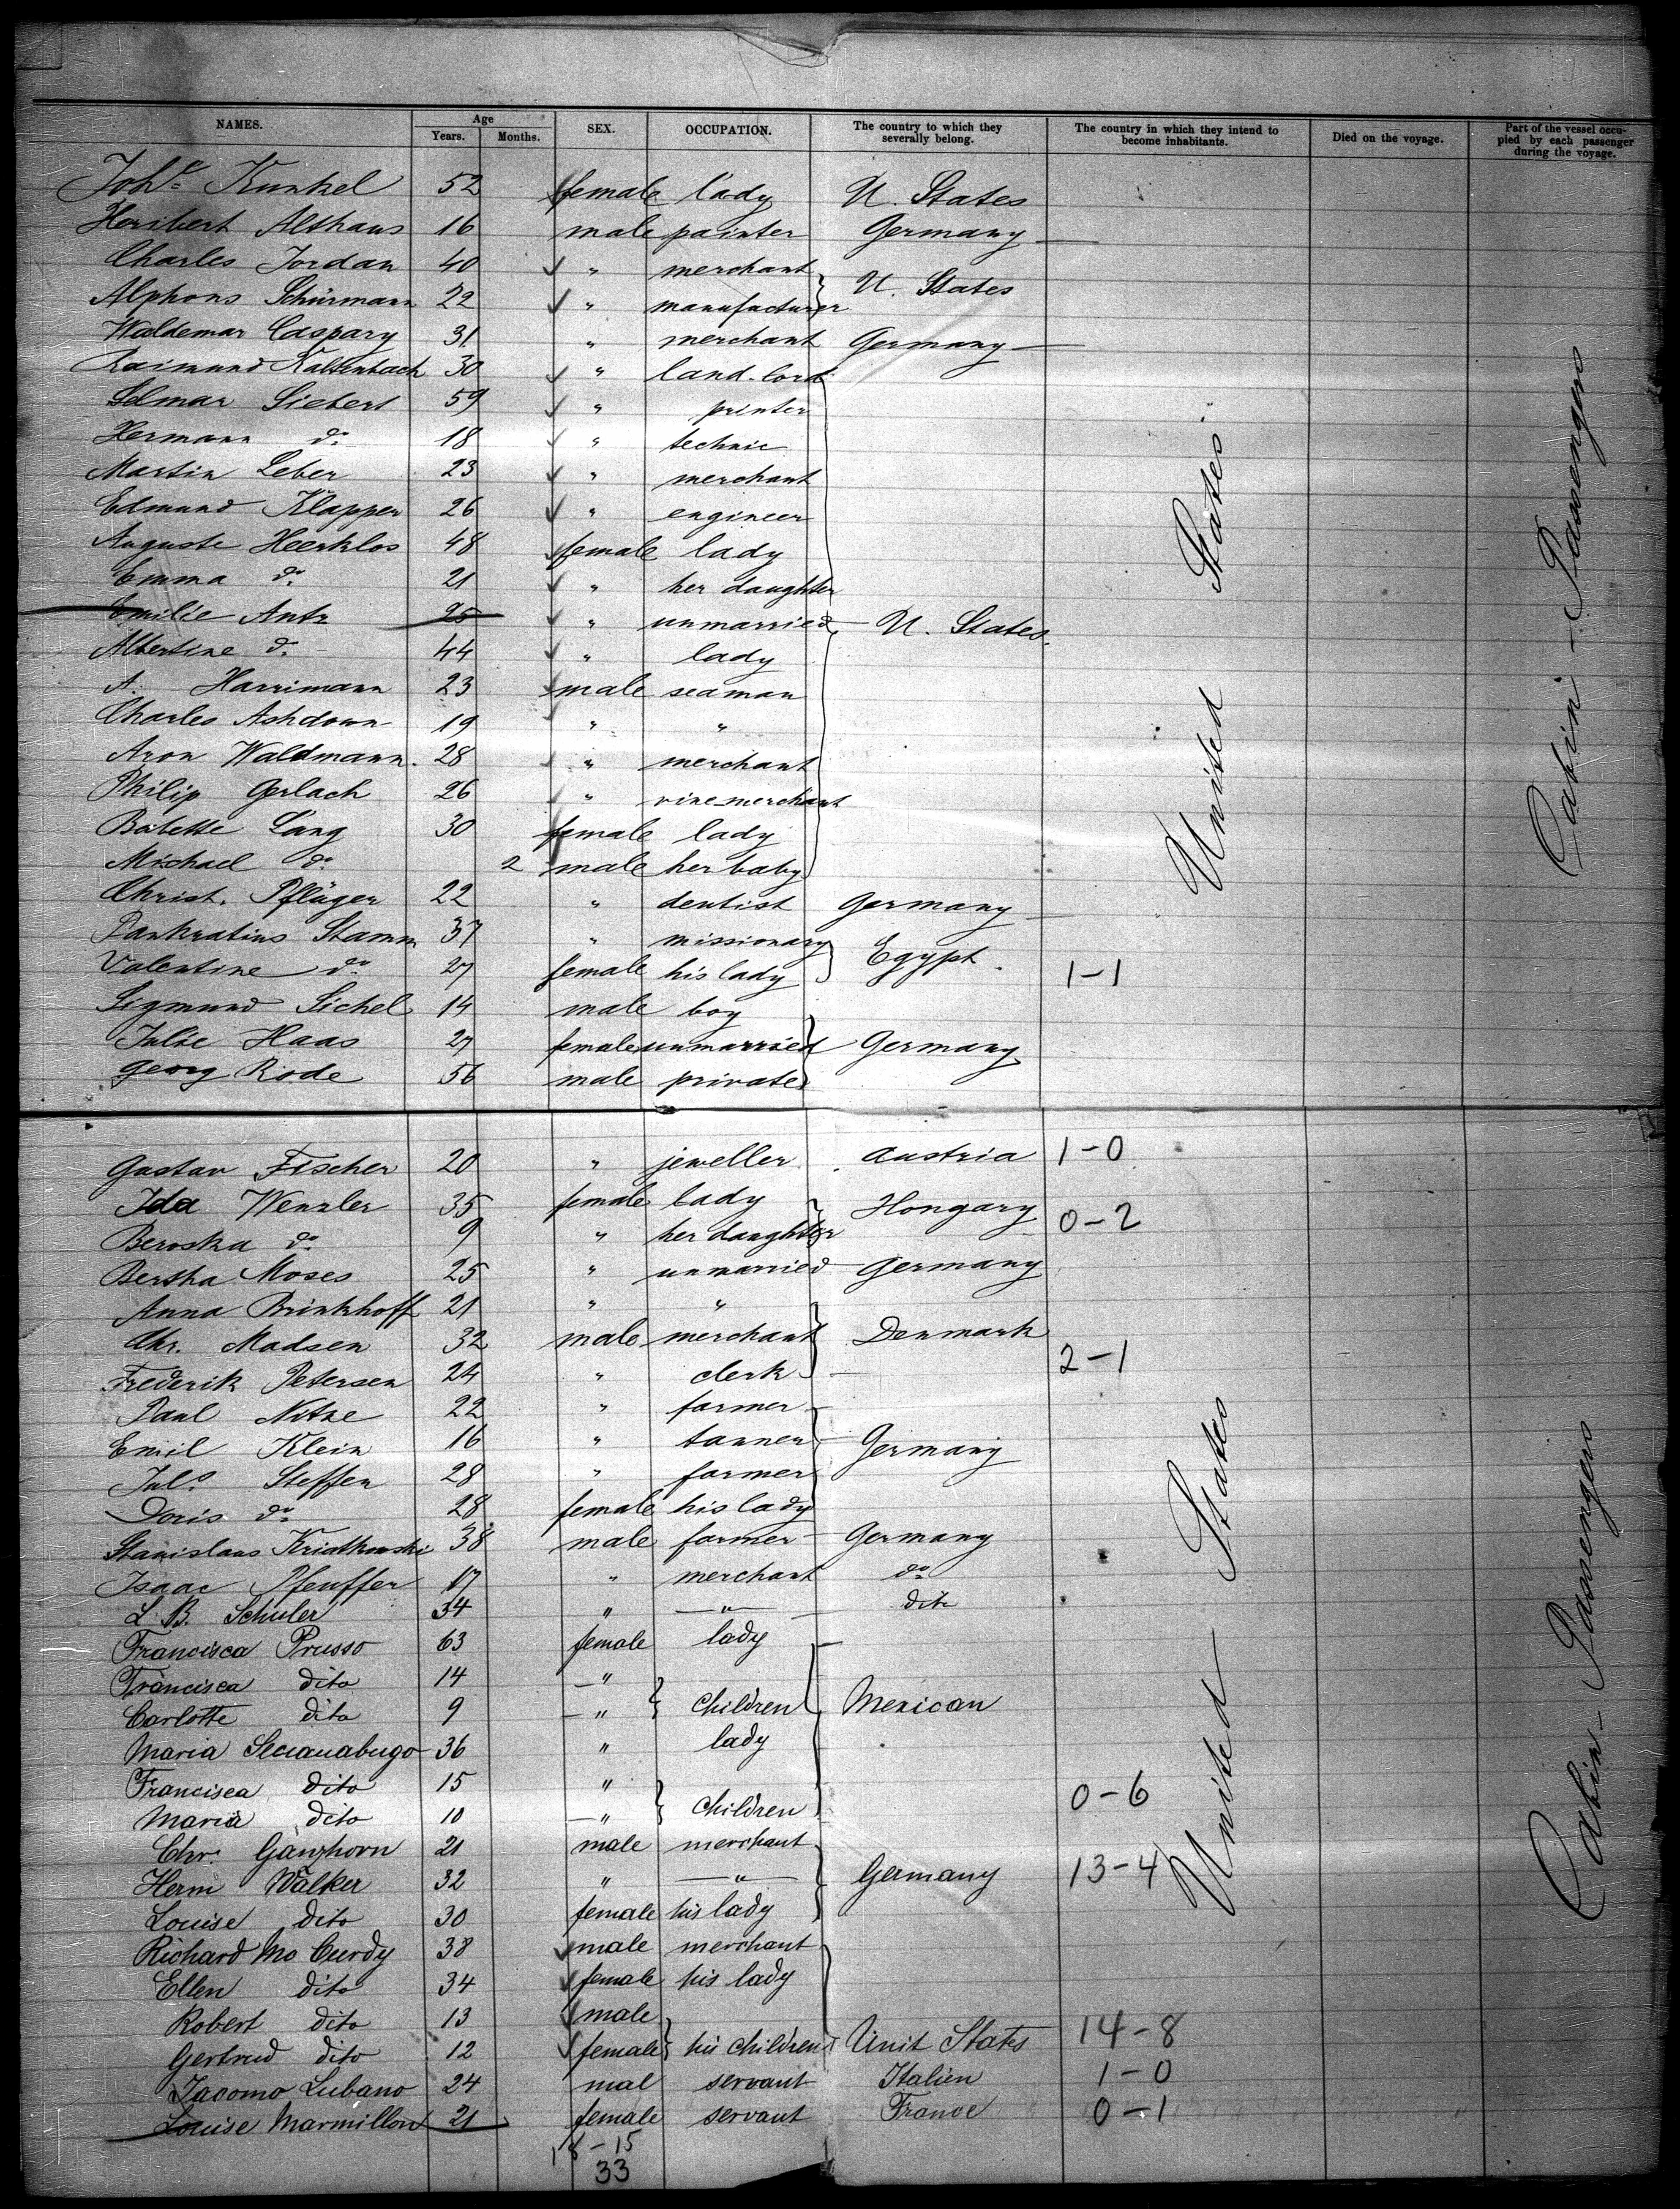 NAMES. Age Years. Months. SEX. OCCUPATION. The country to which they severally belong. The country in which they intend to become inhabitants. Died on the voyage. Part of the vessel occupied by each passenger during the voyage.
Joh.e Kunkel 52 female lady U. States
Heribert Althaus 16 male painter Germany
Charles Jordan 40 " merchant
Alphons Schürmann 22 " manufacturer U. States
Waldemar Caspary 31 " merchant Germany
Raimund Kaltenbach 30 " land-lord
Selmar Siebert 59 " printer
Hermann do 18 " technic
Martin Leber 23 " merchant
Edmund Klapper 26 " engineer
Auguste Heerklos 48 female lady
Emma do 21 " her daughter
Emilie Antz 25 " unmarried U. States
Albertine do 44 " lady
A. Harrimann 23 male seaman
Charles Ashdown 19 " "
Aron Waldmann 28 " merchant
Philip Gerlach 26 " vine-merchant
Babette Lang 30 female lady
Michael do 2 male her baby
Christ. Pflüger 22 " dentist Germany
Pankratius Stamm 37 " missionary Egypt
Valentine do 27 female his lady 1-1
Sigmund Sichel 14 male boy
Julie Haas 27 female unmarried Germany
Georg Rode 56 male private
United States
Cabin-Passengers
Gustav Fischer 20 " jeweller Austria 1-0
Ida Wenzler 35 female lady Hongary 0-2
Beroska do 9 " her daughter
Bertha Moses 25 " unmarried Germany
Anna Brinkhoff 21 " "
Chr. Madsen 32 male merchant Denmark
Frederik Petersen 24 " clerk 2-1
Paul Nitze 22 " farmer
Emil Klein 16 " tanner Germany
Juls. Steffen 28 " farmer
Doris do 28 female his lady
Stanislaus 38 male farmer Germany
Isaac Pfeuffer 17 " merchant do
L. B. Schuler 34 " " dito
Francisca Prusso 63 female lady
Francisca dito 14 "
Carlotte dito 9 " Children Mexican
Maria 36 " lady
Francisca dito 15 "
Maria dito 10 " Children 0-6
Chr. Ganzhorn 21 male merchant
Herm Walker 32 " " Germany 13-4
Louise dito 30 female his lady
Richard Mc Curdy 38 male merchant
Ellen dito 34 female his lady
Robert dito 13 male
Gertrud dito 12 female his children Unit States 14-8
Jacomo Lubano 24 mal servant Italien 1-0
Louise Marmillon 21 female servant France 0-1
18-15
33
United States
Cabin-Passengers